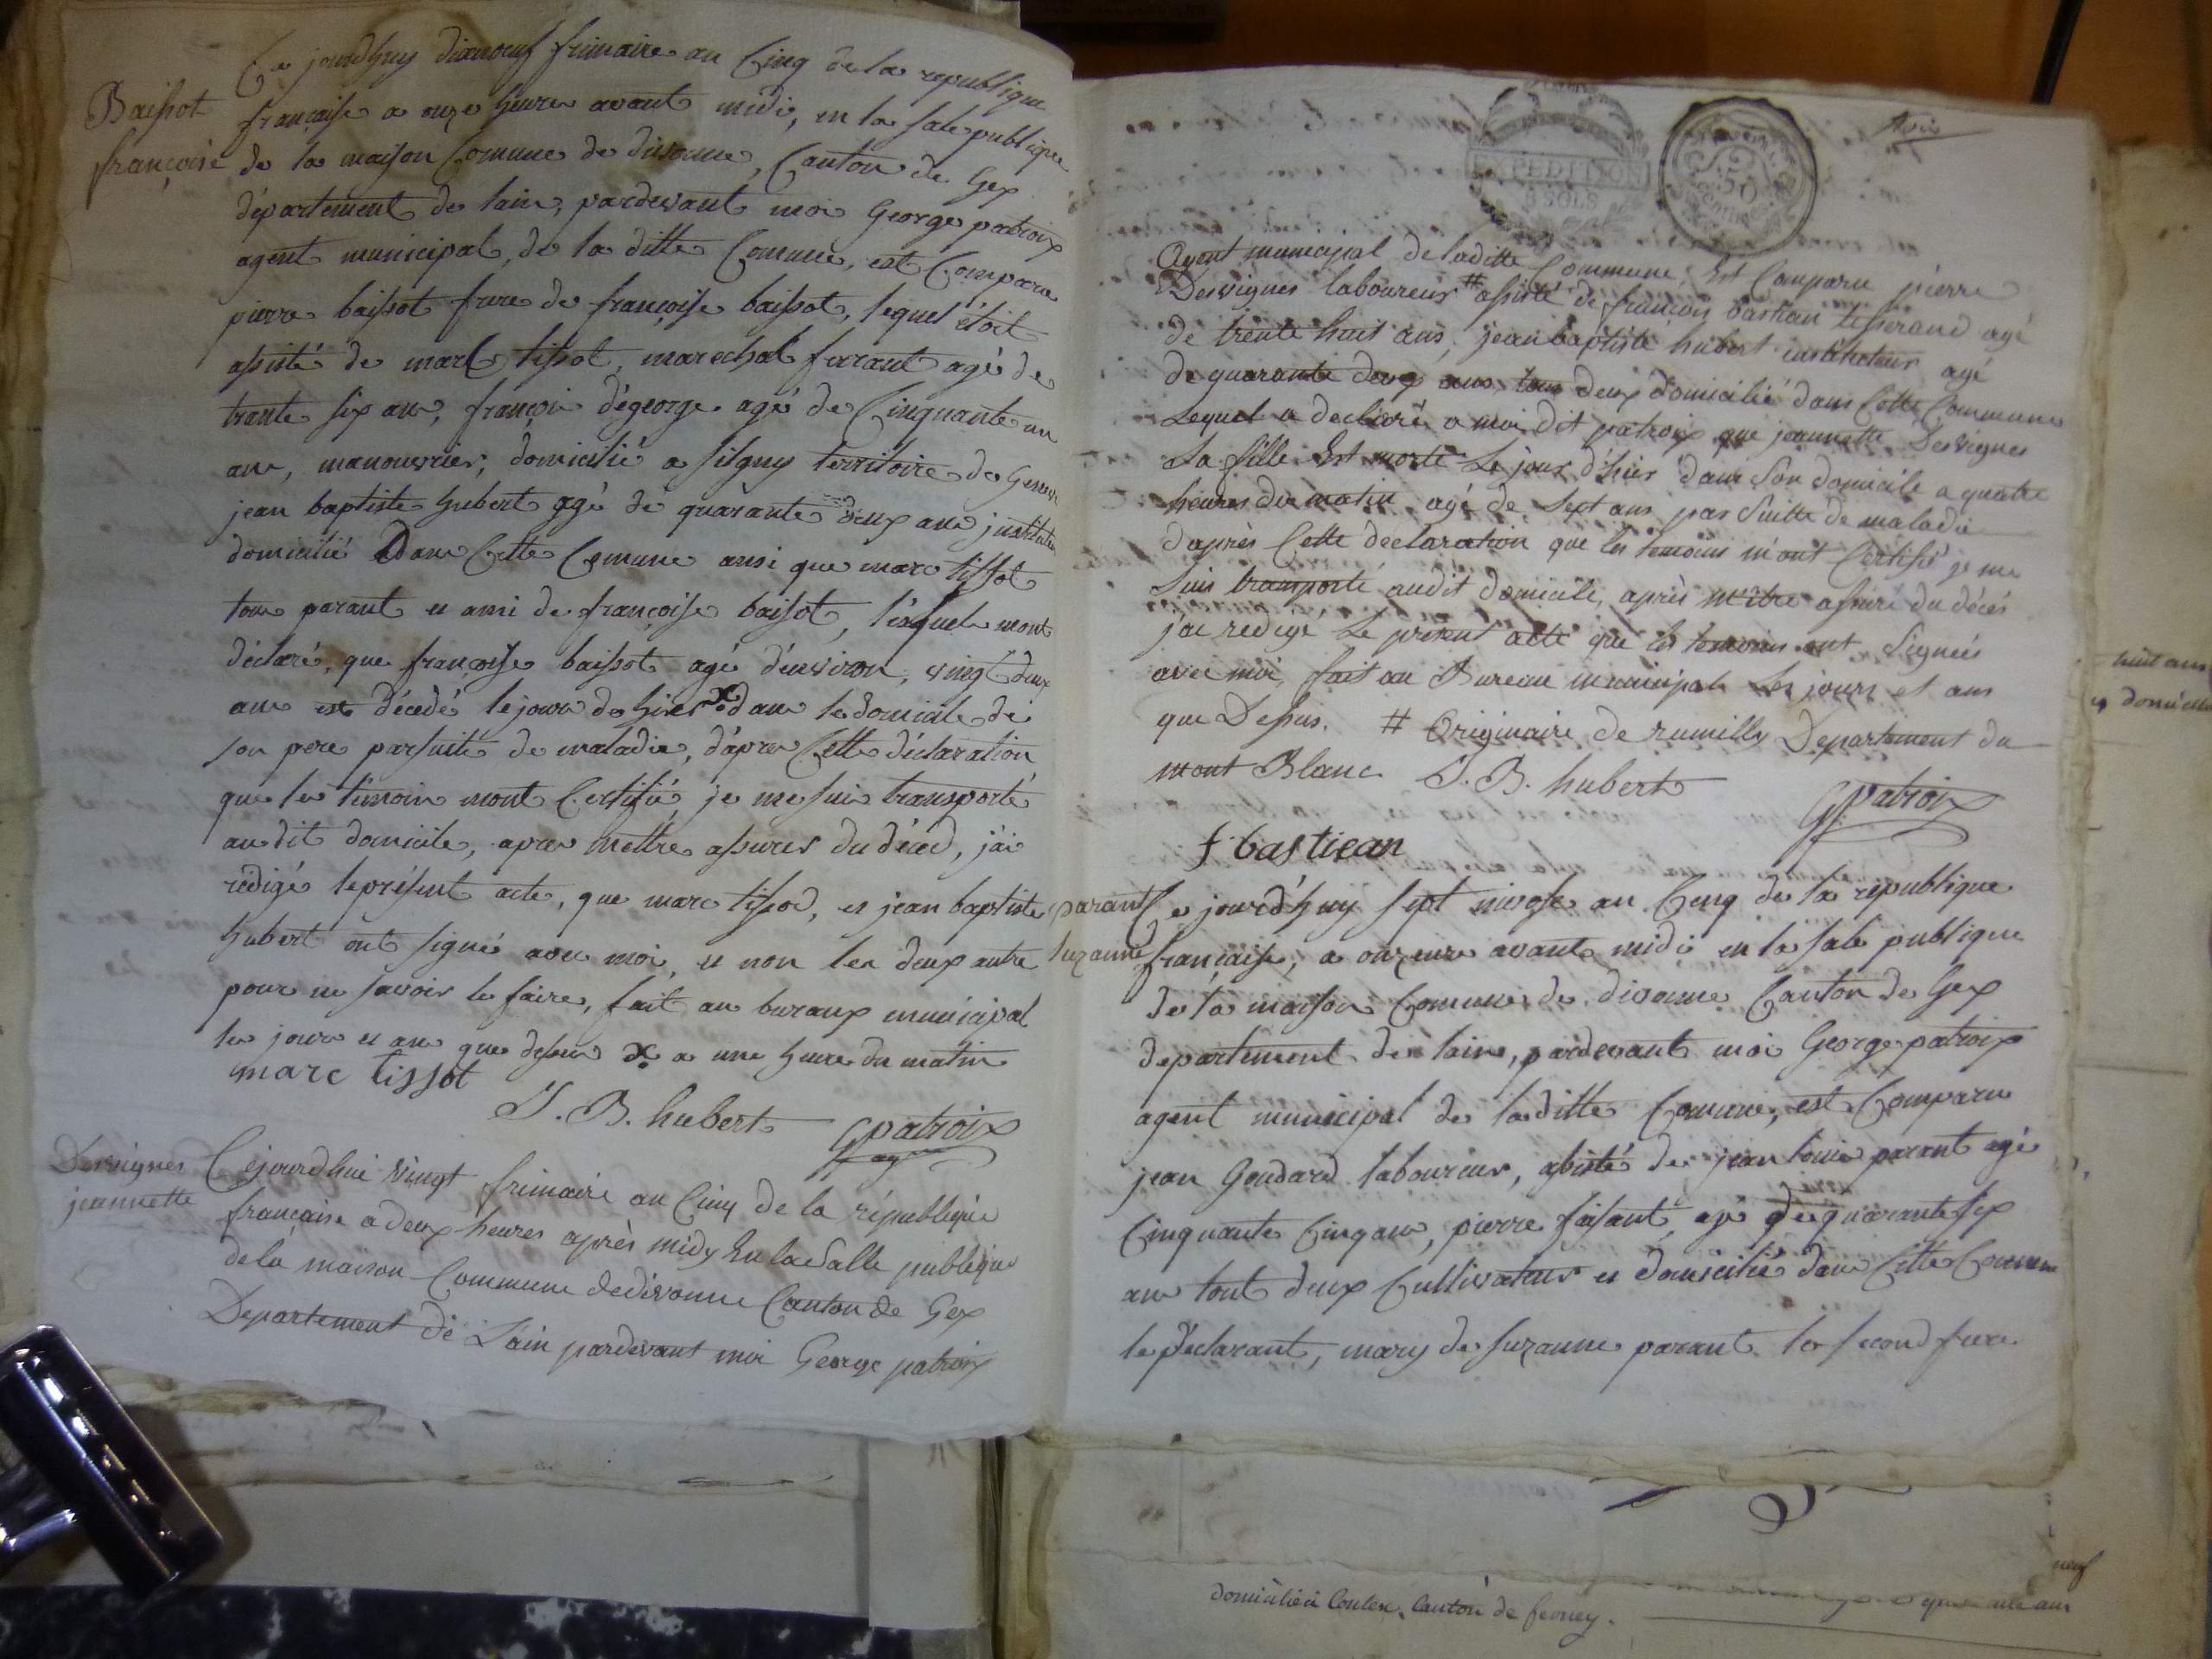 Baissot
françoise
Ce jourdhuy dixneuf frimaire an Cinq de la republique
française a onze heures avant midi, en la sale publique
de la maison Comune de divonne, Canton de Gex
département de lain, pardevant moi George patroix
agent municipal, de la ditte Comune, est Comparu
pierre baissot frere de françoise baissot, lequel étoit
assisté de marc tissot, marechal ferant agé de
trante six ans, françois dégeorge agé de Cinquante un
ans, manouvrier, domicilié a signy territoire de Geneve
jean baptiste hubert agé de quarante deux ans justituteur
domicilié dans Cette Comune ansi que marc tissot
tous parant et ami de françoise baissot, lesquels mont
déclaré, que françoise baissot agé d'environ, vingt deux
ans est décédé le jour de hier x dans le domicile de
son pere parsuite de maladie, d'apres Cette déclaration
que les témoins mont Certifié, je me suis transporté
au dit domicile, apres mettre assurer du décéd, j'ai
rédigé leprésent acte, que marc tissod, et jean baptiste
hubert ont signé avec moi, et non les deux autre
pour ne savoir le faire, fait au buraux municipal
les jour et an que dessus x a une heure du matin
marc tissot
J. B. hubert
GPatroix
agent
Desvignes
jeannette
Cejourdhui vingt frimaire an Cinq de la république
française a deux heures après midy En la Salle publique
de la maison Commune dedivonne Canton de Gex
Departement de L'ain pardevant moi George patroix
EXPEDITION
5 SOLS
50
centimes
Agent municipal de laditte Commune, Est Comparu pierre
Desvignes laboureur # assisté de françois bastian tisserand agé
de trente huit ans, jean baptiste hubert instituteur agé
de quarante deux ans tous deux domicilié dans Cette Commune
Lequel a declaré a moi dit patroix que jeannette Desvignes
Sa fille Est morte Le jour d'hier dans Son domicile a quatre
heures du matin agé de Sept ans par Suitte de maladie
daprès Cette declaration que les temoins m'ont Certifié je me
Suis transporté audit domicile, après m'être assuré du décés
j'ai redigé Le present acte que les temoins ont Signés
avec moi, fait au Bureau municipal Les jours et ans
que Dessus. # Originaire de rumilly Departement du
mont Blanc
J. B. hubert
GPatroix
f bastiean
parant
suzanne
Ce jourd'huy sept nivose an Cinq de la république
française, a onzeure avant midi en la sale publique
de la maison Comune de divonne Canton de Gex
departement de lain, pardevant moi George patroix
agent municipal de laditte Comune, est Comparu
jean Goudard laboureur, assisté de jean louis parant agé
Cinquante Cinq ans, pierre faisant agé de quarante six
ans tout deux Cultivateur et domicilié dans Cette Comune
le déclarant, mary de suzanne parant le second frere
huit ans
domicilié a Coulex, Canton de ferney.
neuf